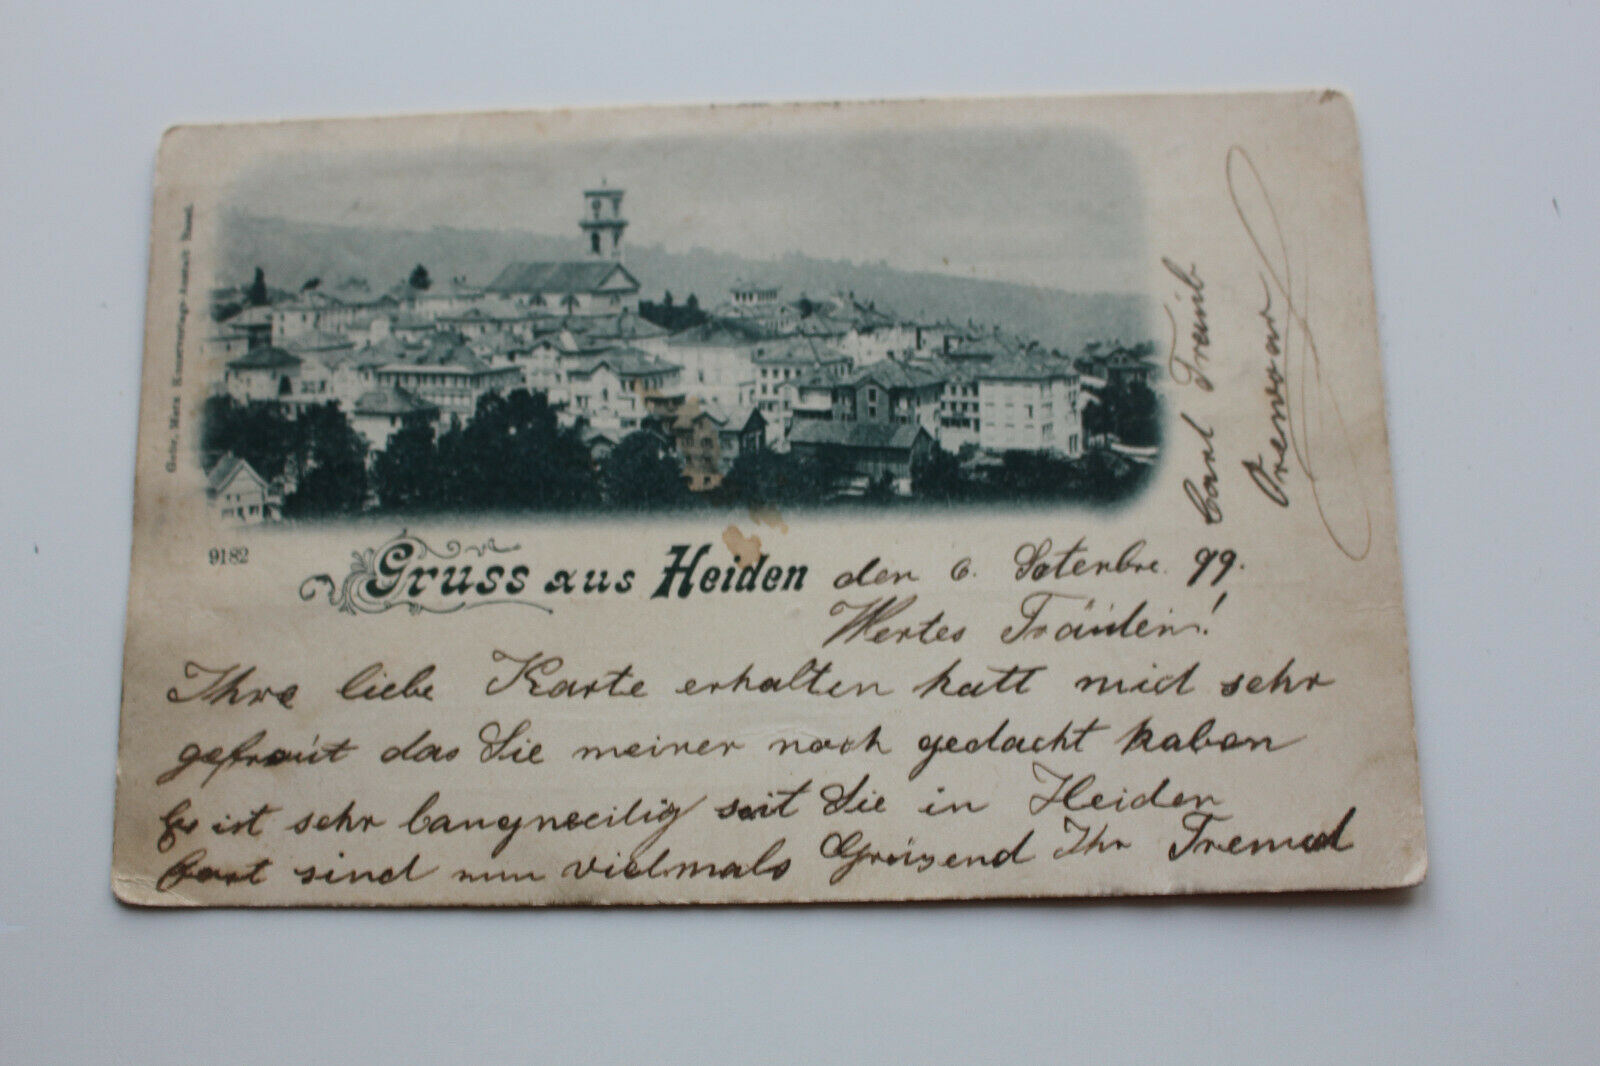 Gebr. Metz Kunstverlags-Anstalt Basel.
9182
Gruss aus Heiden
den 6. Setenbre. 99.
Wertes Fräulein!
Ihre liebe Karte erhalten hatt mich sehr
gefreut das Sie meiner noch gedacht haben
Es ist sehr langweilig seit Sie in Heiden
fort sind nun vielmals Grüsend Ihr Fremd
Carl